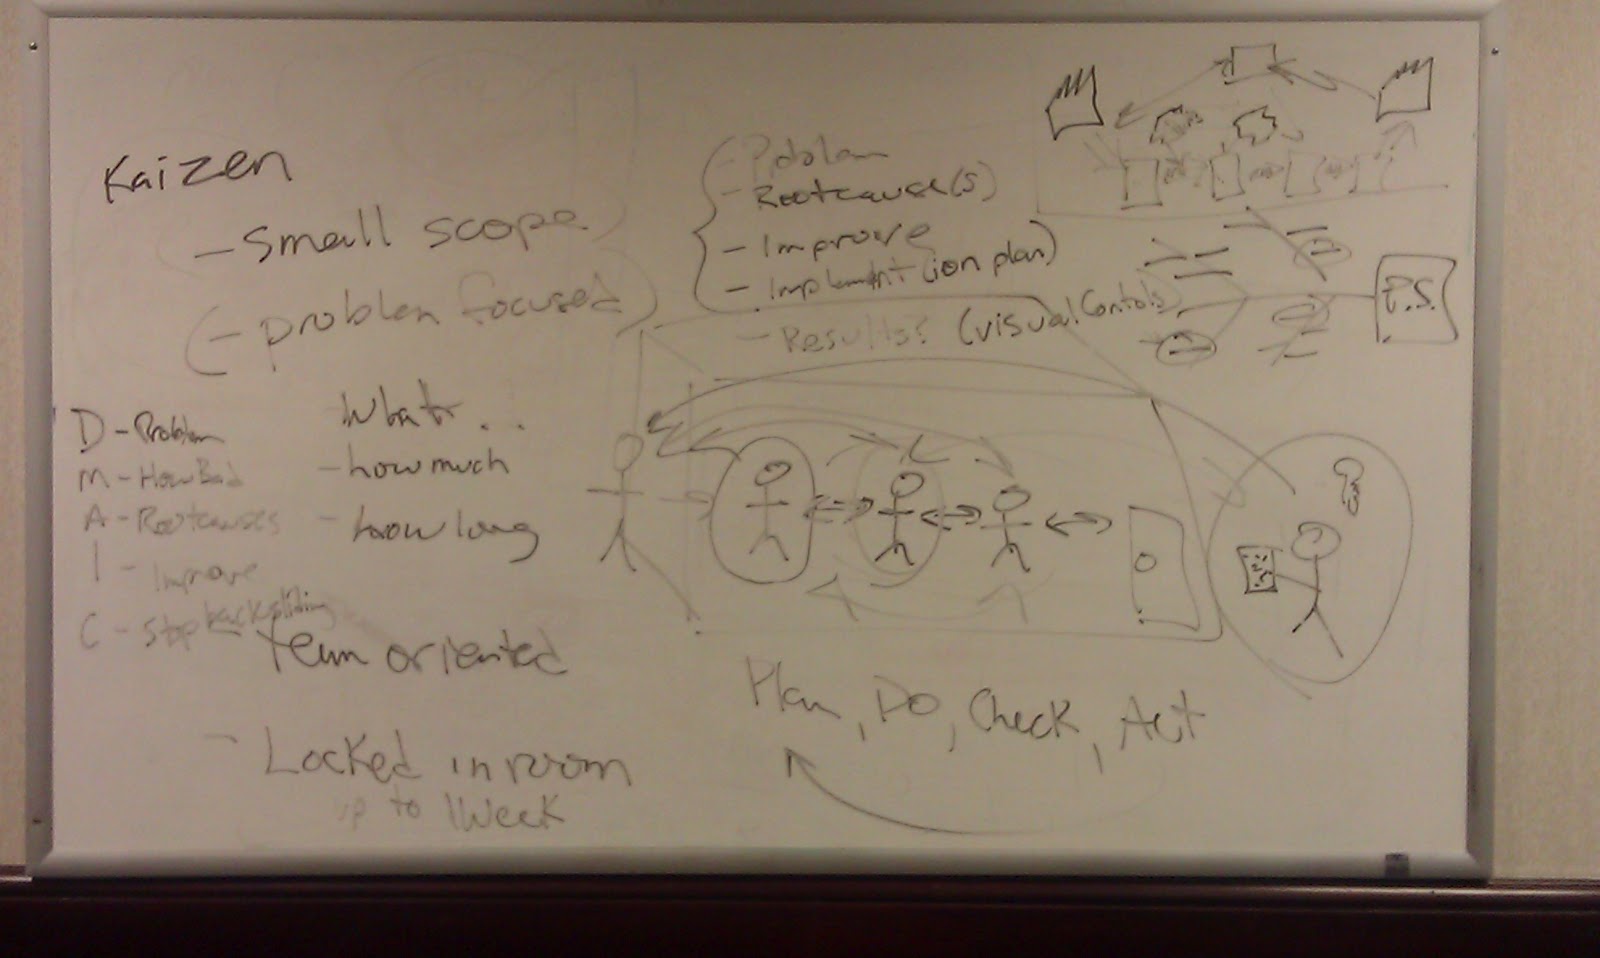 Kaizen
- Small scope
(- problem focused)
What..
- how much
- how long
D - Problem
M - How Bad
A - Root causes
I - Improve
C - Stop backsliding
Team oriented
- Locked in room
up to 1 Week
- Problem
- Root cause(s)
- Improve
- Implement (ion plan)
- Results? (visual Controls)
P.S.
Plan, Do, Check, Act